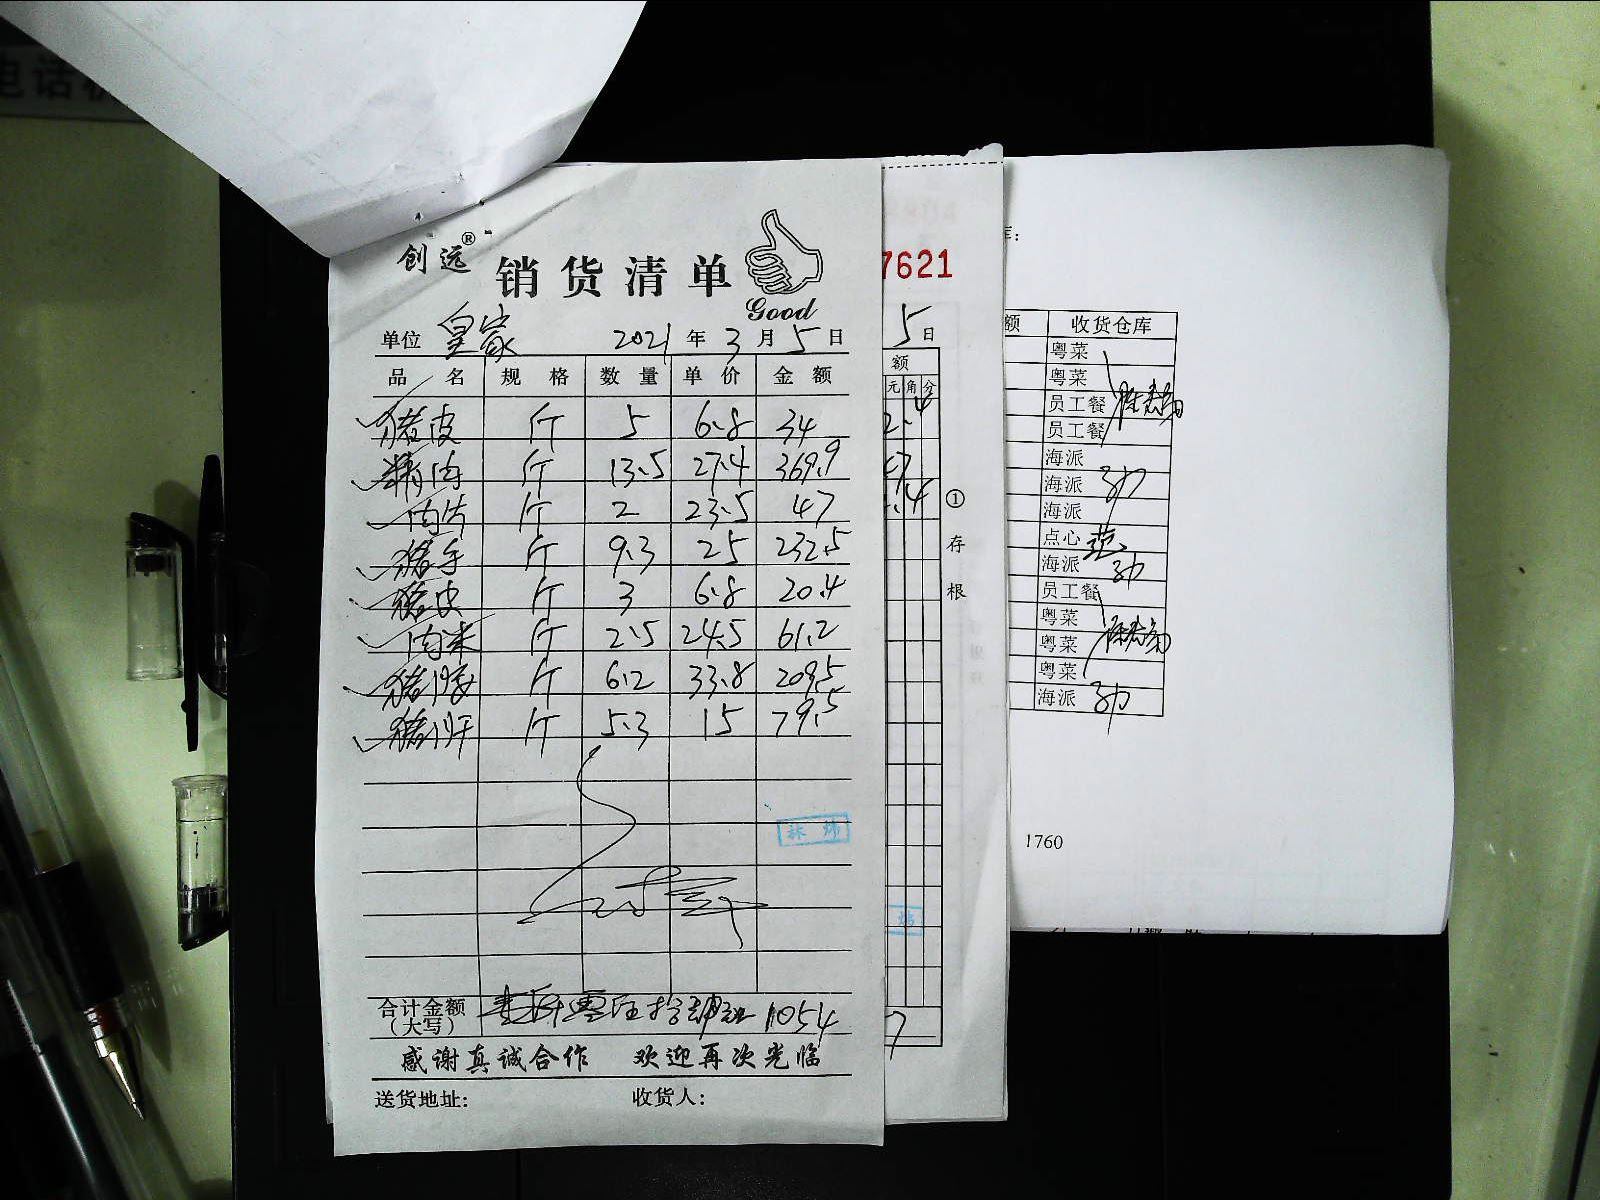 电话
创远®
销货清单
Good
单位 皇家 2021年3月5日
品名 规格 数量 单价 金额
猪皮 斤 5 6.8 34
精肉 斤 13.5 27.4 369.9
肉片 斤 2 23.5 47
猪手 斤 9.3 25 232.5
猪皮 斤 3 6.8 20.4
肉米 斤 2.5 24.5 61.2
猪腰 斤 6.2 33.8 209.5
猪肝 斤 5.3 15 79.5
合计金额（大写） 壹仟零伍拾肆元 1054
感谢真诚合作 欢迎再次光临
送货地址: 收货人:
7621
5日
额
元 角 分
①存根
7
库:
额 收货仓库
粤菜
粤菜
员工餐
员工餐
海派
海派
海派
点心
海派
员工餐
粤菜
粤菜
粤菜
海派
1760